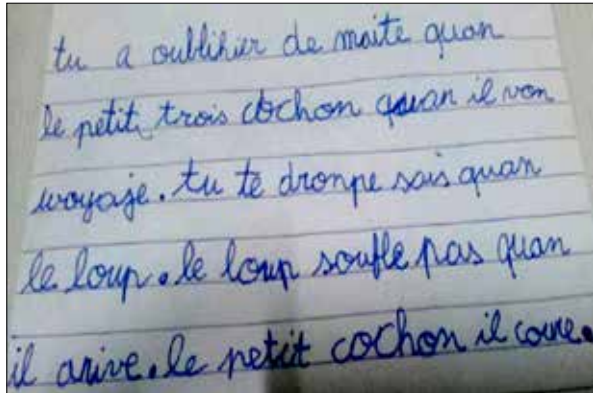 tu a oublihier de maite quan
le petit trois cochon quan il von
woyaje. tu te dronpe sais quan
le loup. le loup soufle pas quan
il arive. le petit cochon il coure.